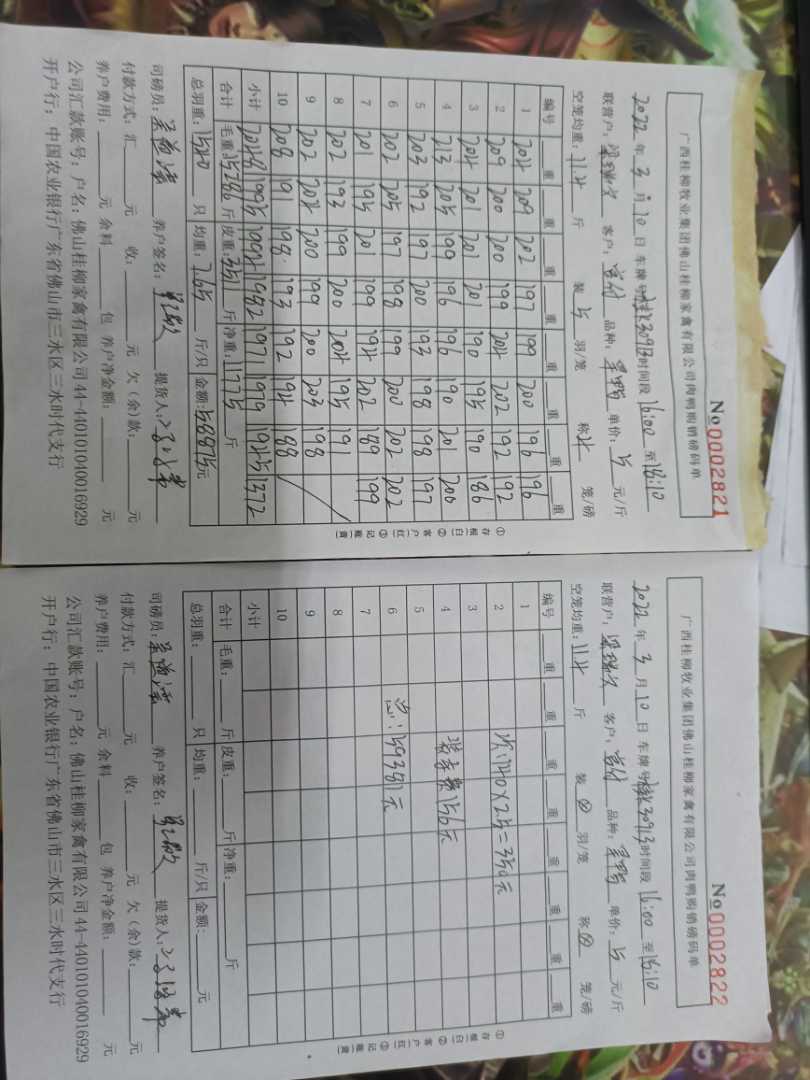 №0002821
广西桂柳牧业集团佛山桂柳家禽有限公司肉鸭购销磅码单
2022年3月10日 车牌号 时间段16:00至18:10
联营户: 客户: 品种: 单价:5元/斤
空笼均重:11.4斤 装5羽/笼 称4笼/磅
编号 重 重 重 重 重 重 重 重
1 204 209 202 197 199 200 196 196
2 209 200 200 199 204 202 192 192
3 204 201 201 201 190 195 190 186
4 213 205 199 196 196 190 201 200
5 203 192 197 200 193 198 198 197
6 202 205 197 198 199 200 202 202
7 201 195 201 199 194 202 189 199
8 202 193 199 200 204 195 191
9 202 204 200 199 200 203 198
10 208 191 198 193 192 194 188
小计 2048 1995 1994 1982 1971 1979 1945 1372
合计 毛重:15286斤 皮重:3511斤 净重:11775斤
总羽重:1540只 均重:7.65斤/只 金额:58875元
司磅员: 养户签名: 提货人:
付款方式:汇 元 收: 元 欠(余)款: 元
养户费用: 元 余料 包 养户净金额: 元
公司汇款账号:户名:佛山桂柳家禽有限公司44-440101040016929
开户行:中国农业银行广东省佛山市三水区三水时代支行
①存根(白)②客户(红)③记账(黄)
№0002822
广西桂柳牧业集团佛山桂柳家禽有限公司肉鸭购销磅码单
2022年3月10日 车牌号 时间段16:00至18:10
联营户: 客户: 品种: 单价:5元/斤
空笼均重:11.4斤 装 羽/笼 称 笼/磅
编号 重 重 重 重 重 重 重 重
1
2 140×2.5=350元
3
4 费156元
5
6 总:59381元
7
8
9
10
小计
合计 毛重: 斤 皮重: 斤 净重: 斤
总羽重: 只 均重: 斤/只 金额: 元
司磅员: 养户签名: 提货人:
付款方式:汇 元 收: 元 欠(余)款: 元
养户费用: 元 余料 包 养户净金额: 元
公司汇款账号:户名:佛山桂柳家禽有限公司44-440101040016929
开户行:中国农业银行广东省佛山市三水区三水时代支行
①存根(白)②客户(红)③记账(黄)